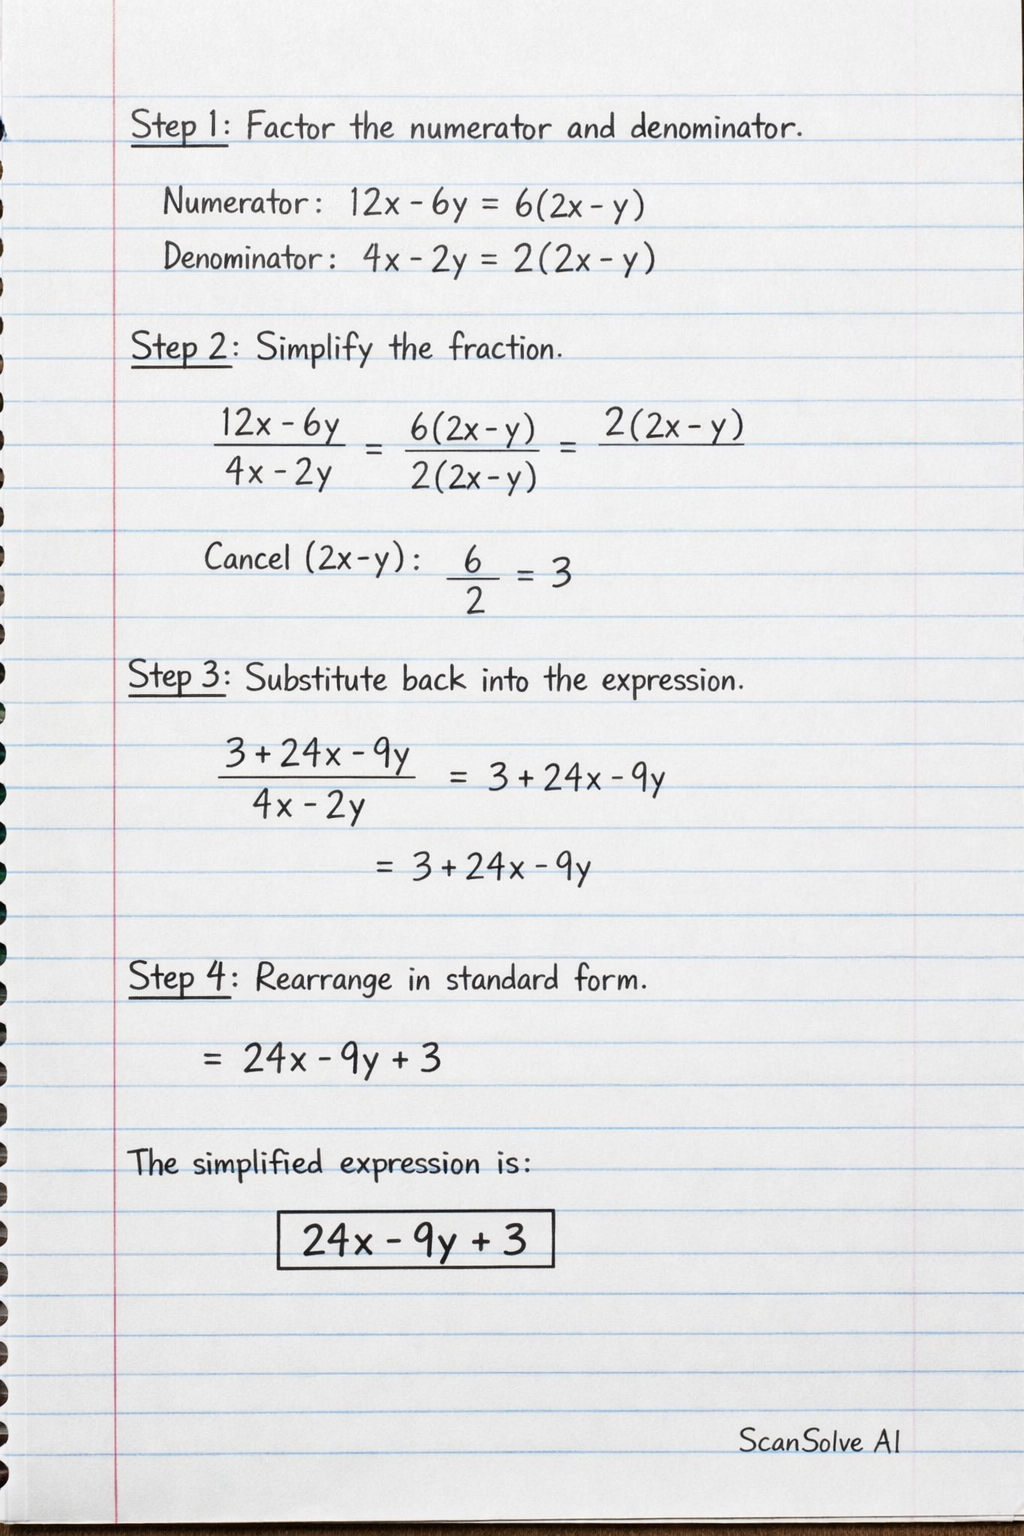 Step 1: Factor the numerator and denominator.
Numerator: 12x - 6y = 6(2x - y)
Denominator: 4x - 2y = 2(2x - y)
Step 2: Simplify the fraction.
12x - 6y / 4x - 2y = 6(2x - y) / 2(2x - y) = 2(2x - y)
Cancel (2x - y): 6 / 2 = 3
Step 3: Substitute back into the expression.
3 + 24x - 9y / 4x - 2y = 3 + 24x - 9y
= 3 + 24x - 9y
Step 4: Rearrange in standard form.
= 24x - 9y + 3
The simplified expression is:
24x - 9y + 3
ScanSolve AI